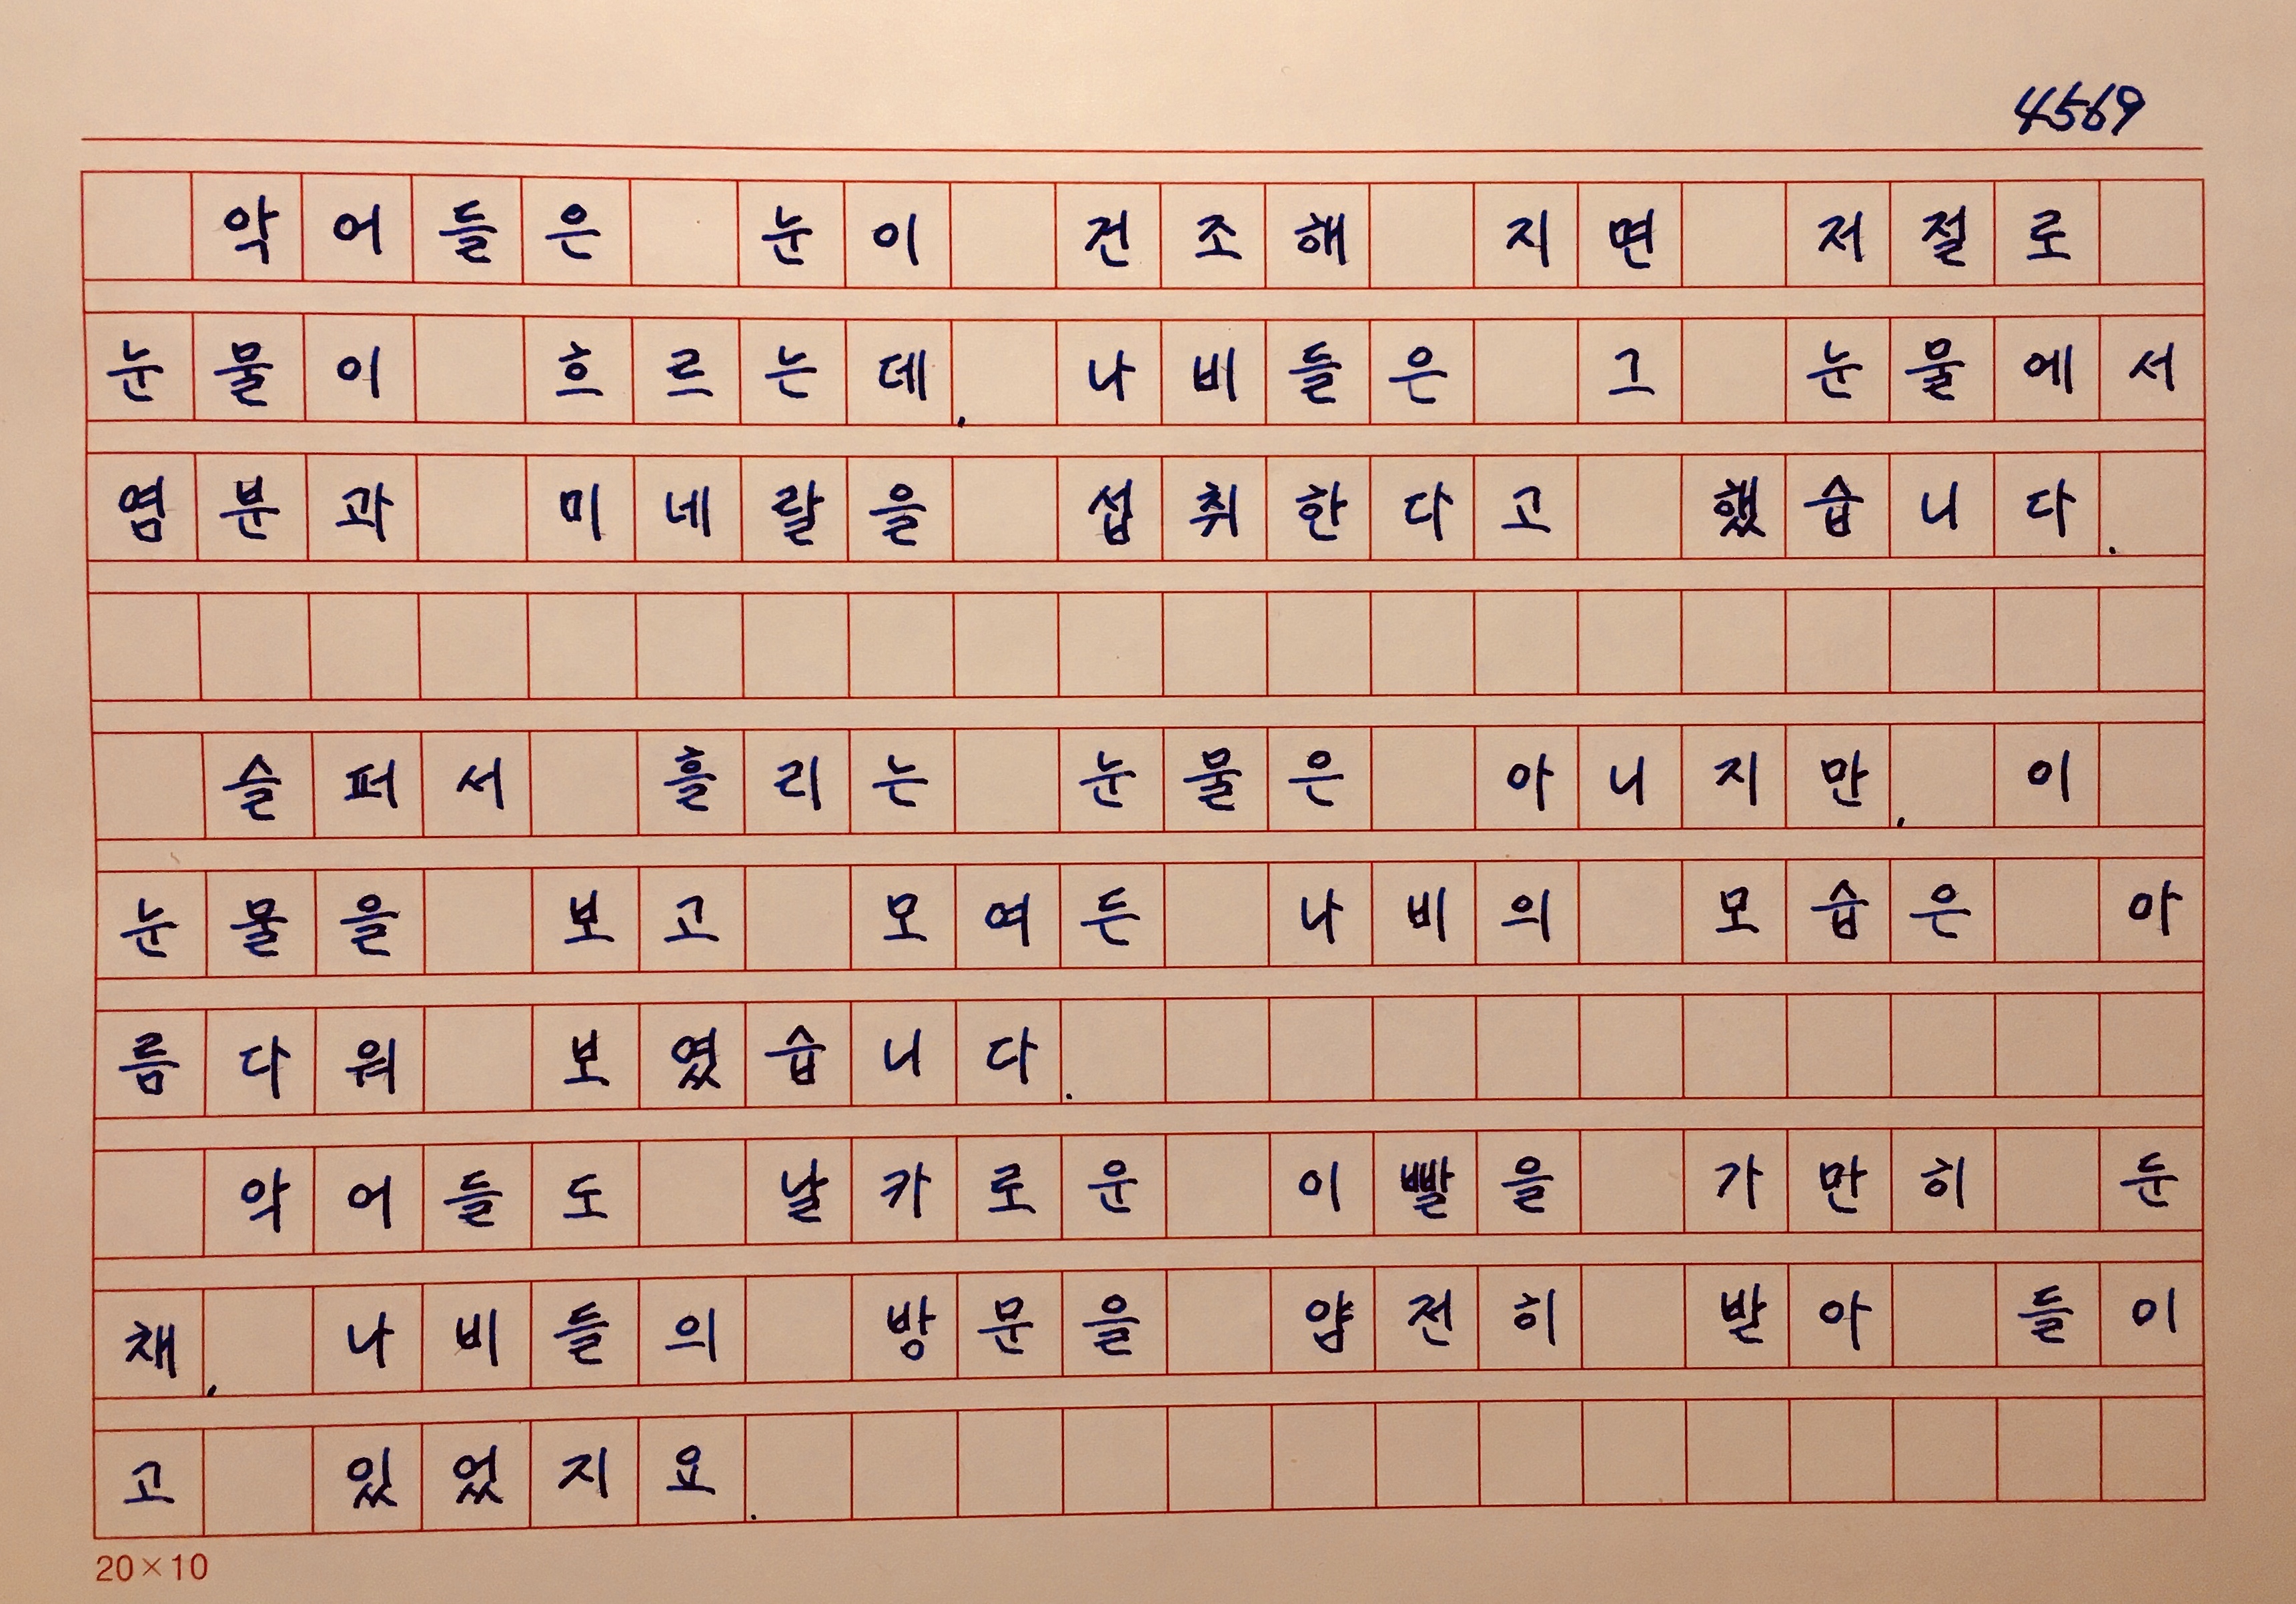 4569
악어들은 눈이 건조해 지면 저절로
눈물이 흐르는데, 나비들은 그 눈물에서
염분과 미네랄을 섭취한다고 했습니다.
슬퍼서 흘리는 눈물은 아니지만, 이
눈물을 보고 모여든 나비의 모습은 아
름다워 보였습니다.
악어들도 날카로운 이빨을 가만히 둔
채, 나비들의 방문을 얌전히 받아 들이
고 있었지요.
20×10